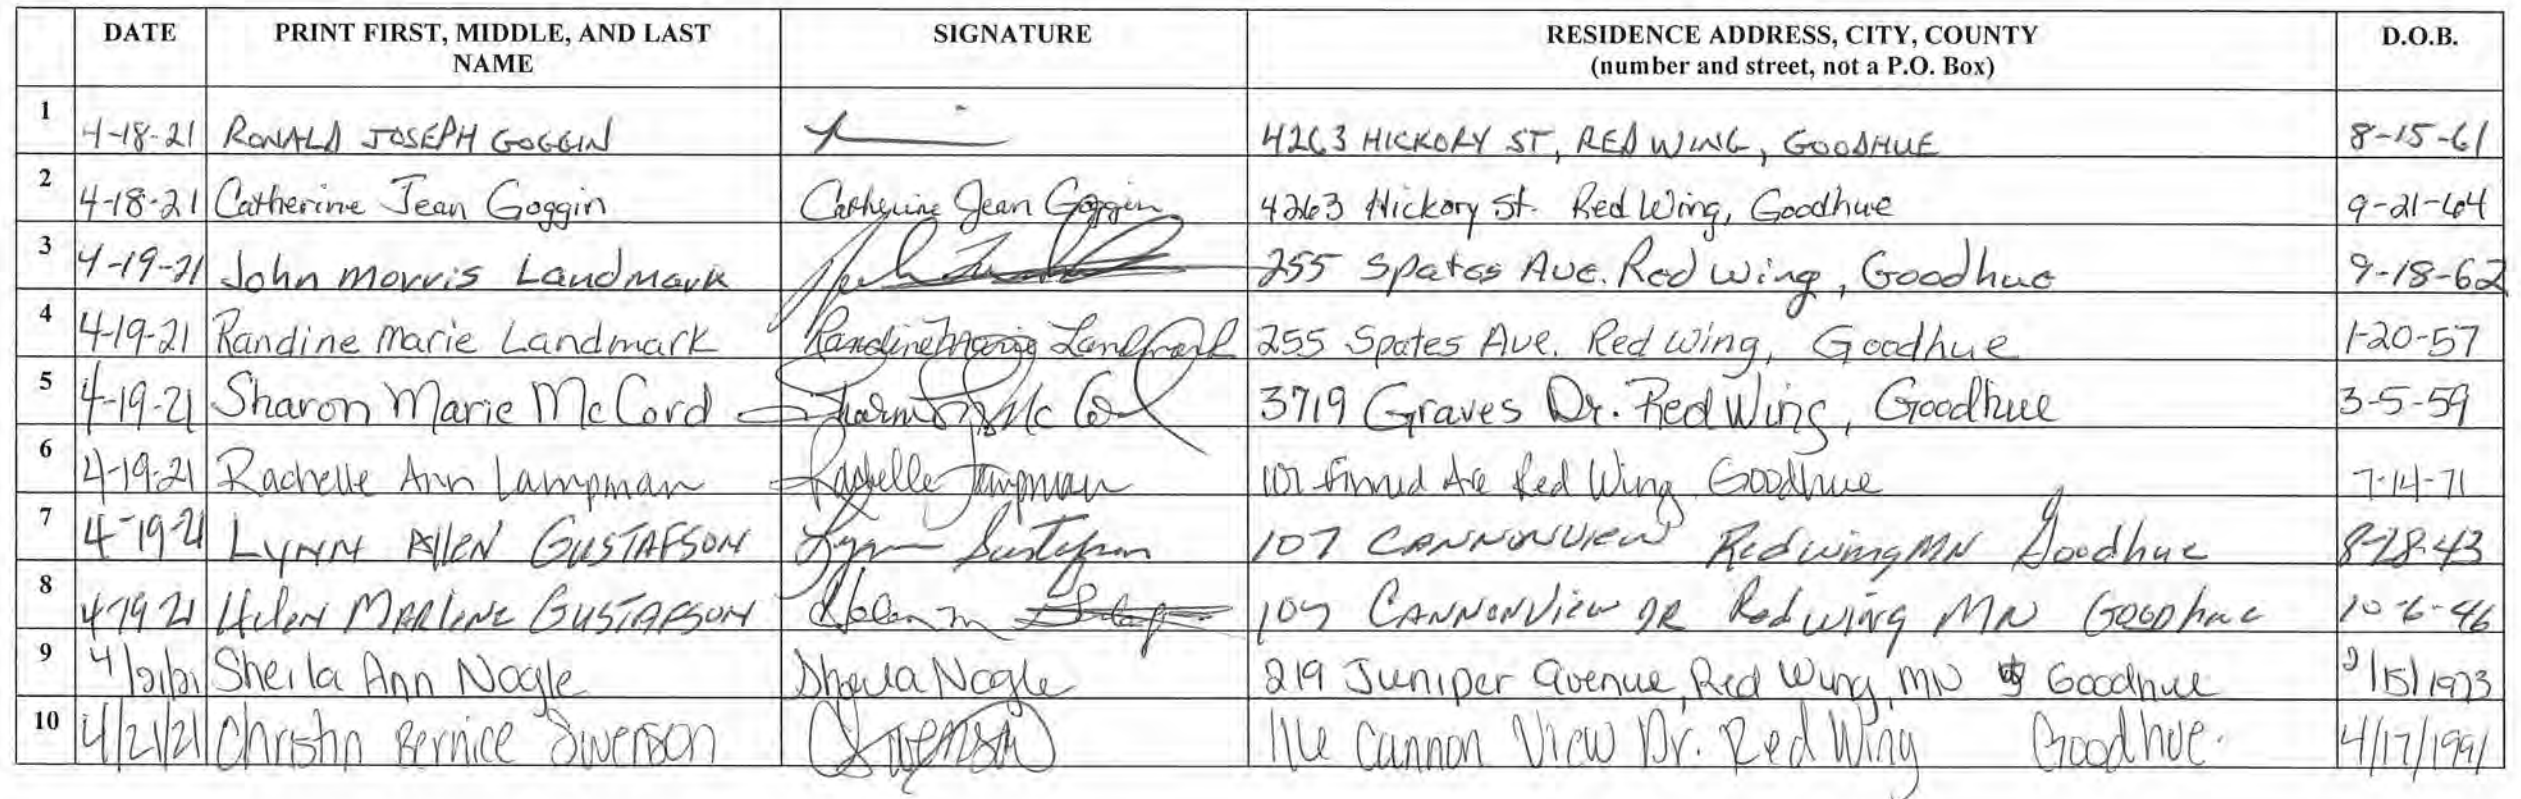 DATE PRINT FIRST, MIDDLE, AND LAST NAME SIGNATURE RESIDENCE ADDRESS, CITY, COUNTY (number and street, not a P.O. Box) D.O.B.
1 4-18-21 RONALD JOSEPH GOGGIN 4263 HICKORY ST, RED WING, GOODHUE 8-15-61
2 4-18-21 Catherine Jean Goggin Catherine Jean Goggin 4263 Hickory St. Red Wing, Goodhue 9-21-64
3 4-19-21 John Morris Landmark 255 Spates Ave. Red Wing, Goodhue 9-18-62
4 4-19-21 Randine Marie Landmark Randine Marie Landmark 255 Spates Ave. Red Wing, Goodhue 1-20-57
5 4-19-21 Sharon Marie McCord Sharon McCord 3719 Graves Dr. Red Wing, Goodhue 3-5-59
6 4-19-21 Rachelle Ann Lampman Rachelle Lampman Red Wing Goodhue 7-14-71
7 4-19-21 LYNN AllEN GUSTAFSON Lynn Gustafson 107 CANNONVIEW Redwing MN Goodhue 8-28-43
8 4-19-21 Helen MARlENE GUSTAFSON Helen M 107 CANNONView DR Redwing MN GOODhue 10-6-46
9 4/21/21 Sheila Ann Nagle Sheila Nagle 219 Juniper Avenue, Red Wing, MN Goodhue /15/1973
10 4/21/21 Christin Bernice Swenson Swenson 116 Cannon View Dr. Red Wing Goodhue. 4/17/1991